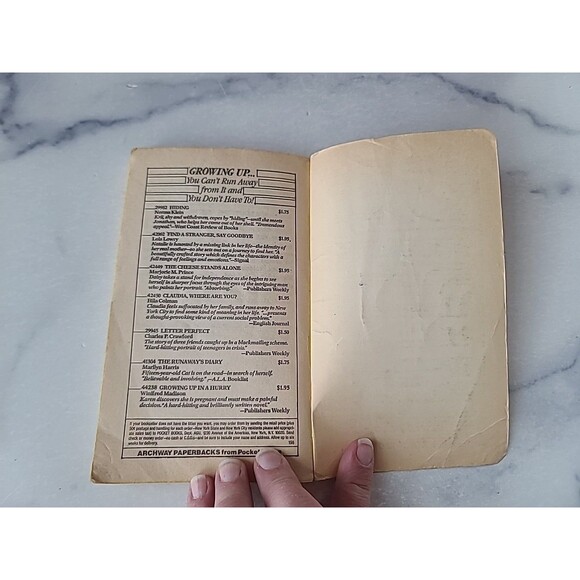 GROWING UP...
You Can't Run Away
from It and
You Don't Have To!
29982 HIDING
Norma Klein $1.75
Krii, shy and withdrawn, copes by "hiding"—until she meets
Jonathan, who helps her come out of her shell.
appeal."—West Coast Review of Books
42062 FIND A STRANGER, SAY GOODBYE
Lois Lowry $1.95
Natalie is haunted by a missing link in her life—the identity of
her real mother—so she sets out on a journey to find her. "A
beautifully crafted story which defines the characters with a
full range of feelings and emotions."—Signal
42449 THE CHEESE STANDS ALONE
Marjorie M. Prince $1.95
Daisy takes a stand for independence as she begins to see
herself in sharper focus through the eyes of the intriguing man
who paints her portrait. "Absorbing." —Publishers Weekly
42450 CLAUDIA, WHERE ARE YOU? $1.95
Hila Colman
Claudia feels suffocated by her family, and runs away to New
York City to find some kind of meaning in her life. "...presents
a thought-provoking view of a current social problem."
—English Journal
29945 LETTER PERFECT $1.50
Charles P. Crawford
The story of three friends caught up in a blackmailing scheme.
"Hard-hitting portrait of teenagers in crisis."
—Publishers Weekly
41308 THE RUNAWAY'S DIARY $1.75
Marilyn Harris
Fifteen-year-old Cat is on the road—in search of herself.
"Believable and involving."—A.L.A. Booklist
44238 GROWING UP IN A HURRY $1.95
Winifred Madison
Karen discovers she is pregnant and must make a painful
decision. "A hard-hitting and brilliantly written novel."
—Publishers Weekly
If your bookseller does not have the titles you want, you may order them by sending the retail price (plus
50¢ postage and handling for each order—New York State and New York City residents please add appropri-
ate sales tax) to POCKET BOOKS, Dept. AGU, 1230 Avenue of the Americas, New York, N.Y. 10020. Send
check or money order—no cash or C.O.D.s—and be sure to include your name and address. Allow up to six
weeks for delivery.
ARCHWAY PAPERBACKS from